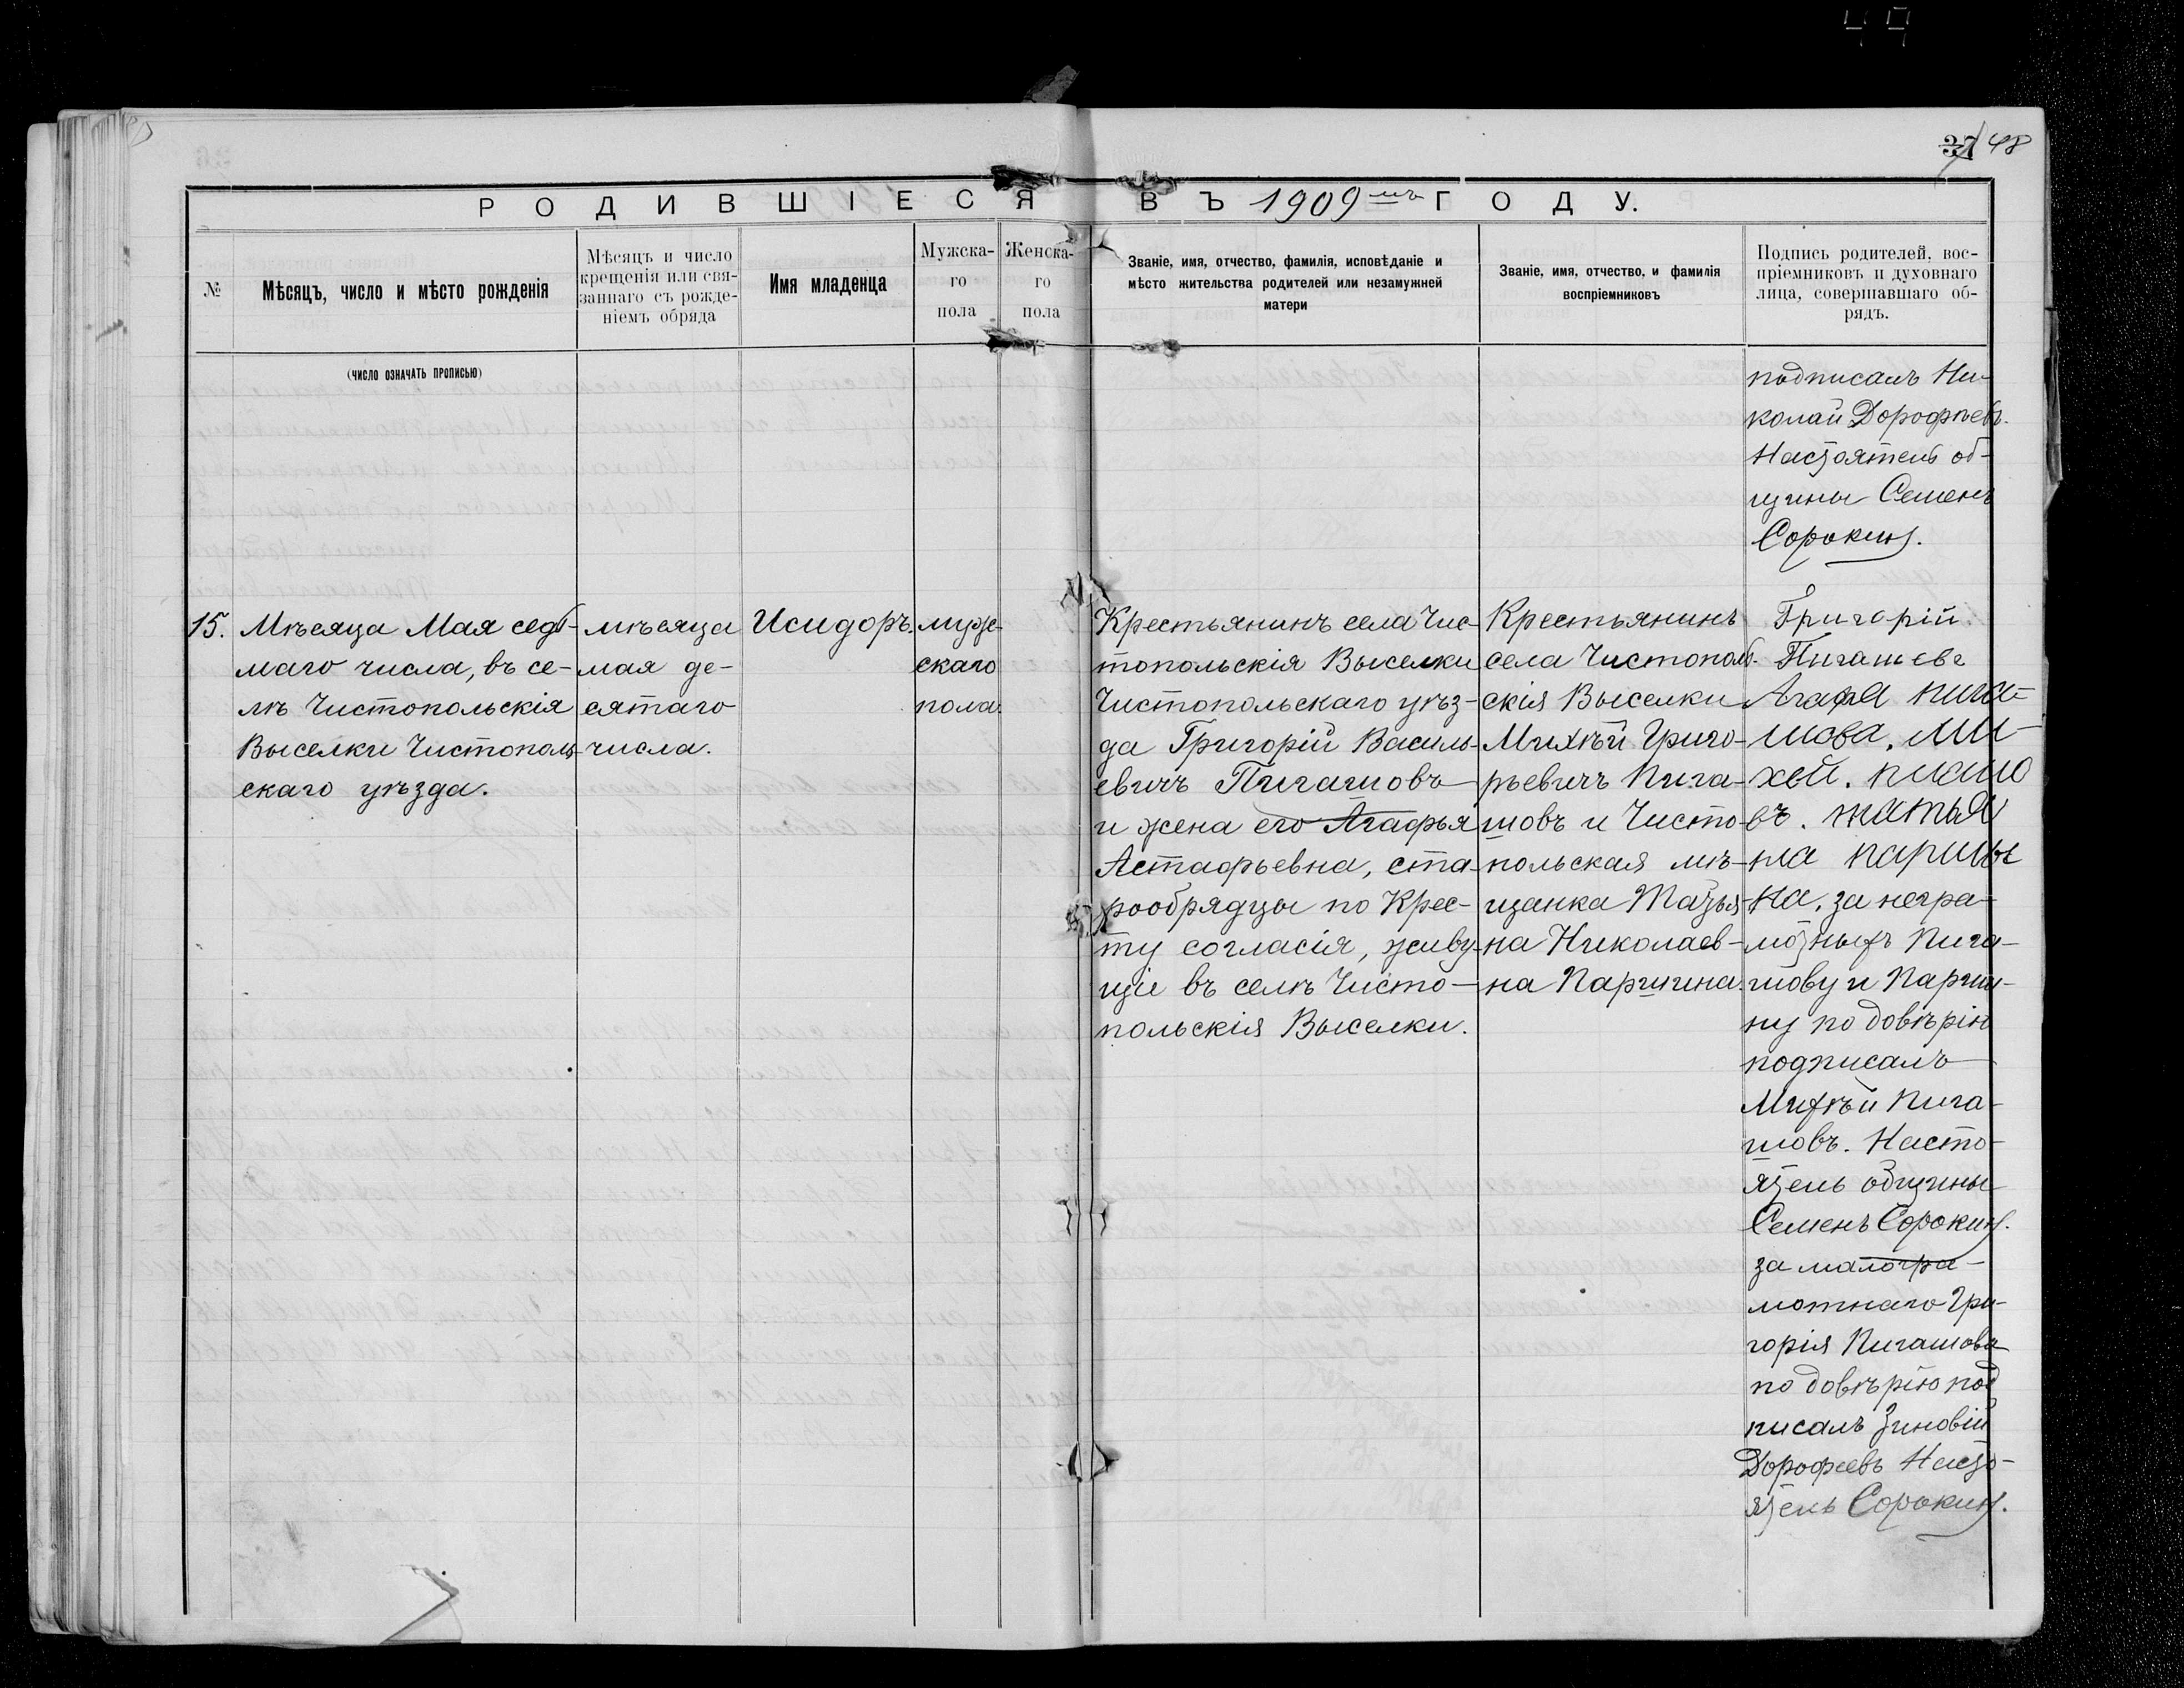 49
37 48
РОДИВШІЕСЯ ВЪ 1909мъ ГОДУ.
№
Мѣсяцъ, число и мѣсто рожденія
(число означать прописью)
Мѣсяцъ и число
крещенія или свя-
заннаго съ рожде-
ніемъ обряда
Имя младенца
Мужска-
го
пола
Женска-
го
пола
Званіе, имя, отчество, фамилія, исповѣданіе и
мѣсто жительства родителей или незамужней
матери
Званіе, имя, отчество, и фамилія
воспріемниковъ
Подпись родителей, вос-
пріемниковъ и духовнаго
лица, совершавшаго об-
рядъ.
подписалъ Ни-
колай Дорофѣевъ.
Настоятель об-
щины Семенъ
Сорокинъ.
15.
Мѣсяца Мая седь-
маго числа, въ се-
лѣ Чистопольскія
Выселки Чистополь-
скаго уѣзда.
мѣсяца
мая де-
сятаго
числа.
Исидоръ.
муже-
скаго
пола.
Крестьянинъ села Чис-
топольскія Выселки
Чистопольскаго уѣз-
да Григорій Василь-
евичъ Пигашовъ
и жена его Агафья
Астафьевна, ста-
рообрядцы по Крес-
ту согласія, живу-
щіе въ селѣ Чисто-
польскія Выселки.
Крестьянинъ
села Чистополь-
скія Выселки
Михѣй Григо-
рьевичъ Пига-
шовъ и Чисто-
польская мѣ-
щанка Татья-
на Николаев-
на Паршина.
Григорій
Пигашевъ
Агафа пига-
шова. Ми-
хей. пиашо
въ. татья
на паршы
на. за негра-
мотныхъ Пига-
шову и Парши-
ну по довѣрію
подписалъ
Михѣй Пига-
шовъ. Насто-
ятель общины
Семенъ Сорокинъ.
за малогра-
мотнаго Гри-
горія Пигашова
по довѣрію под
писалъ Зиновій
Дорофеевъ Насто-
ятель Сорокинъ.